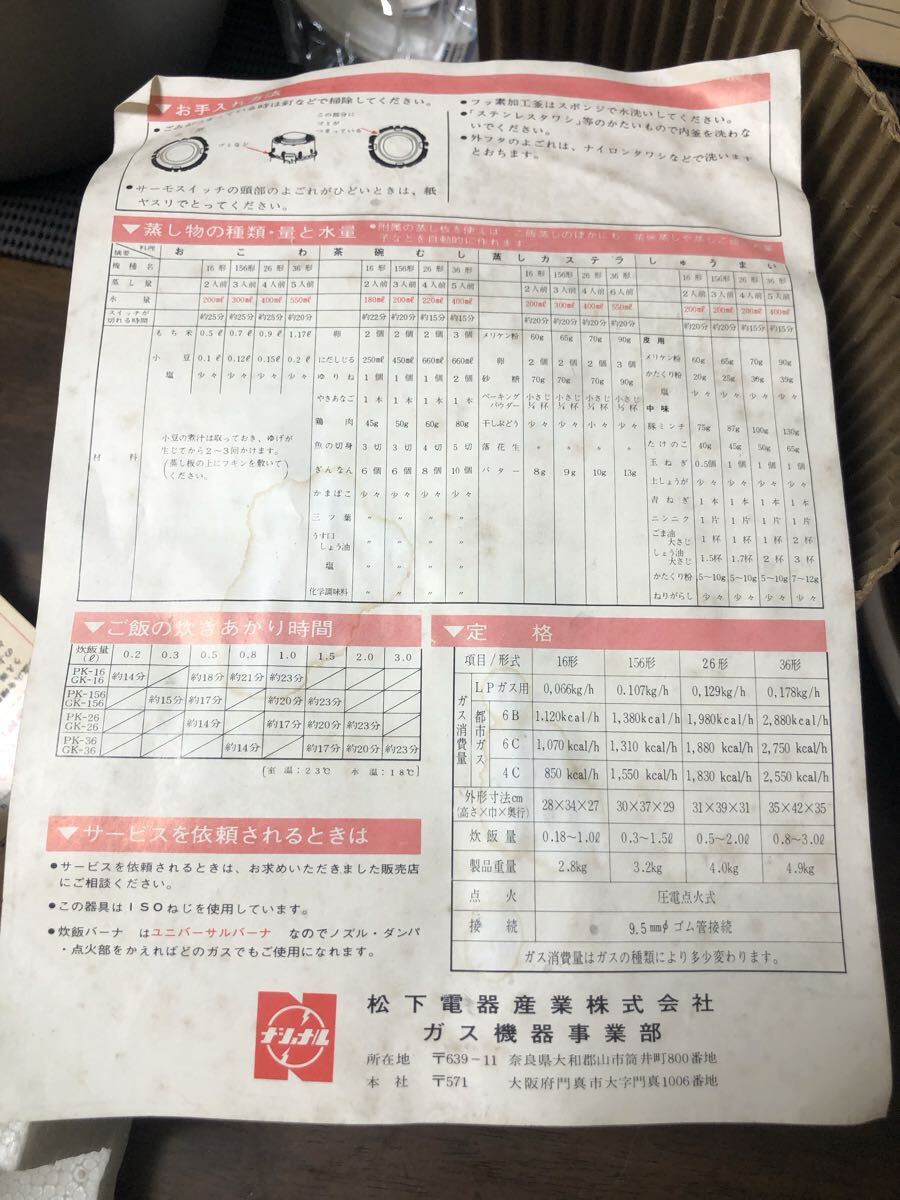 ▼お手入れ方法
●ごみがつまっている時は釘などで掃除してください。
この部分に
ゴミが
つまっている
●サーモスイッチの頭部のよごれがひどいときは、紙
ヤスリでとってください。
●フッ素加工釜はスポンジで水洗いしてください。
●「ステンレスタワシ」等のかたいもので内釜を洗わな
いでください。
●外フタのよごれは、ナイロンタワシなどで洗いますと
おちます。
▼蒸し物の種類・量と水量
●附属の蒸し板を使えば ご飯蒸しのほかにも
子などを自動的に作れます。
摘要 料理 おこわ 茶碗むし 蒸しカステラ しゅうまい
機種名 16形 156形 26形 36形 16形 156形 26形 36形 16形 156形 26形 36形 16形 156形 26形 36形
蒸し量 2人前 3人前 4人前 5人前 2人前 2人前 2人前 3人前 2人前 3人前 4人前 6人前 2人前 3人前 4人前 5人前
水量 200㎖ 300㎖ 400㎖ 550㎖ 180㎖ 200㎖ 220㎖ 400㎖ 200㎖ 300㎖ 400㎖ 550㎖ 200㎖ 200㎖ 200㎖ 400㎖
スイッチが切れる時間 約25分 約25分 約25分 約20分 約22分 約20分 約15分 約15分 約20分 約20分 約20分 約20分 約20分 約20分 約15分 約15分
材料
もち米 0.5ℓ 0.7ℓ 0.9ℓ 1.17ℓ
小豆 0.1ℓ 0.12ℓ 0.15ℓ 0.2ℓ
塩 少々 少々 少々 少々
小豆の煮汁は取っておき、ゆげが
生じてから2〜3回かけます。
(蒸し板の上にフキンを敷いて
ください。)
卵 2個 2個 2個 3個
にだしじる 250㎖ 450㎖ 660㎖ 660㎖
ゆりね 1個 1個 1個 2個
やきあなご 1本 1本 1本 1本
鶏肉 45g 50g 60g 80g
魚の切身 3切 3切 4切 5切
ぎんなん 6個 6個 8個 10個
かまぼこ 少々 少々 少々 少々
三ツ葉 〃 〃 〃 〃
うす口しょう油 〃 〃 〃 〃
塩 〃 〃 〃 〃
化学調味料 〃 〃 〃 〃
メリケン粉 60g 65g 70g 90g
卵 2個 2個 2個 3個
砂糖 70g 70g 70g 90g
ベーキングパウダー 小さじ 小さじ 小さじ 小さじ
干しぶどう 少々 少々 少々 少々
落花生 〃 〃 〃 〃
バター 8g 9g 10g 13g
皮用
メリケン粉 60g 65g 70g 90g
かたくり粉 20g 25g 36g 39g
塩 少々 少々 少々 少々
中味
豚ミンチ 75g 87g 100g 130g
たけのこ 40g 45g 50g 65g
玉ねぎ 0.5個 1個 1個 1個
土しょうが 少々 少々 少々 少々
青ねぎ 1本 1本 1本 1本
ニンニク 1片 1片 1片 1片
ごま油 大さじ 1杯 1杯 1杯 2杯
しょう油 大さじ 1.5杯 1.7杯 2杯 3杯
かたくり粉 5〜10g 5〜10g 5〜10g 7〜12g
ねりがらし 少々 少々 少々 少々
▼ご飯の炊きあがり時間
炊飯量(ℓ) 0.2 0.3 0.5 0.8 1.0 1.5 2.0 3.0
PK-16 GK-16 約14分 約18分 約21分 約23分
PK-156 GK-156 約15分 約17分 約20分 約23分
PK-26 GK-26 約14分 約17分 約20分 約23分
PK-36 GK-36 約14分 約17分 約20分 約23分
[室温:23℃ 水温:18℃]
▼サービスを依頼されるときは
●サービスを依頼されるときは、お求めいただきました販売店
にご相談ください。
●この器具はISOねじを使用しています。
●炊飯バーナ はユニバーサルバーナ なのでノズル・ダンパ
・点火部をかえればどのガスでもご使用になれます。
▼定格
項目/形式 16形 156形 26形 36形
ガス消費量
LPガス用 0,066kg/h 0.107kg/h 0,129kg/h 0,178kg/h
都市ガス
6B 1.120kcal/h 1,380kcal/h 1,980kcal/h 2,880kcal/h
6C 1,070kcal/h 1,310kcal/h 1,880kcal/h 2,750kcal/h
4C 850kcal/h 1,550kcal/h 1,830kcal/h 2,550kcal/h
外形寸法cm(高さ×巾×奥行) 28×34×27 30×37×29 31×39×31 35×42×35
炊飯量 0.18〜1.0ℓ 0.3〜1.5ℓ 0.5〜2.0ℓ 0.8〜3.0ℓ
製品重量 2.8kg 3.2kg 4.0kg 4.9kg
点火 圧電点火式
接続 9.5mmφゴム管接続
ガス消費量はガスの種類により多少変わります。
ナショナル
松下電器産業株式会社
ガス機器事業部
所在地 〒639-11 奈良県大和郡山市筒井町800番地
本社 〒571 大阪府門真市大字門真1006番地